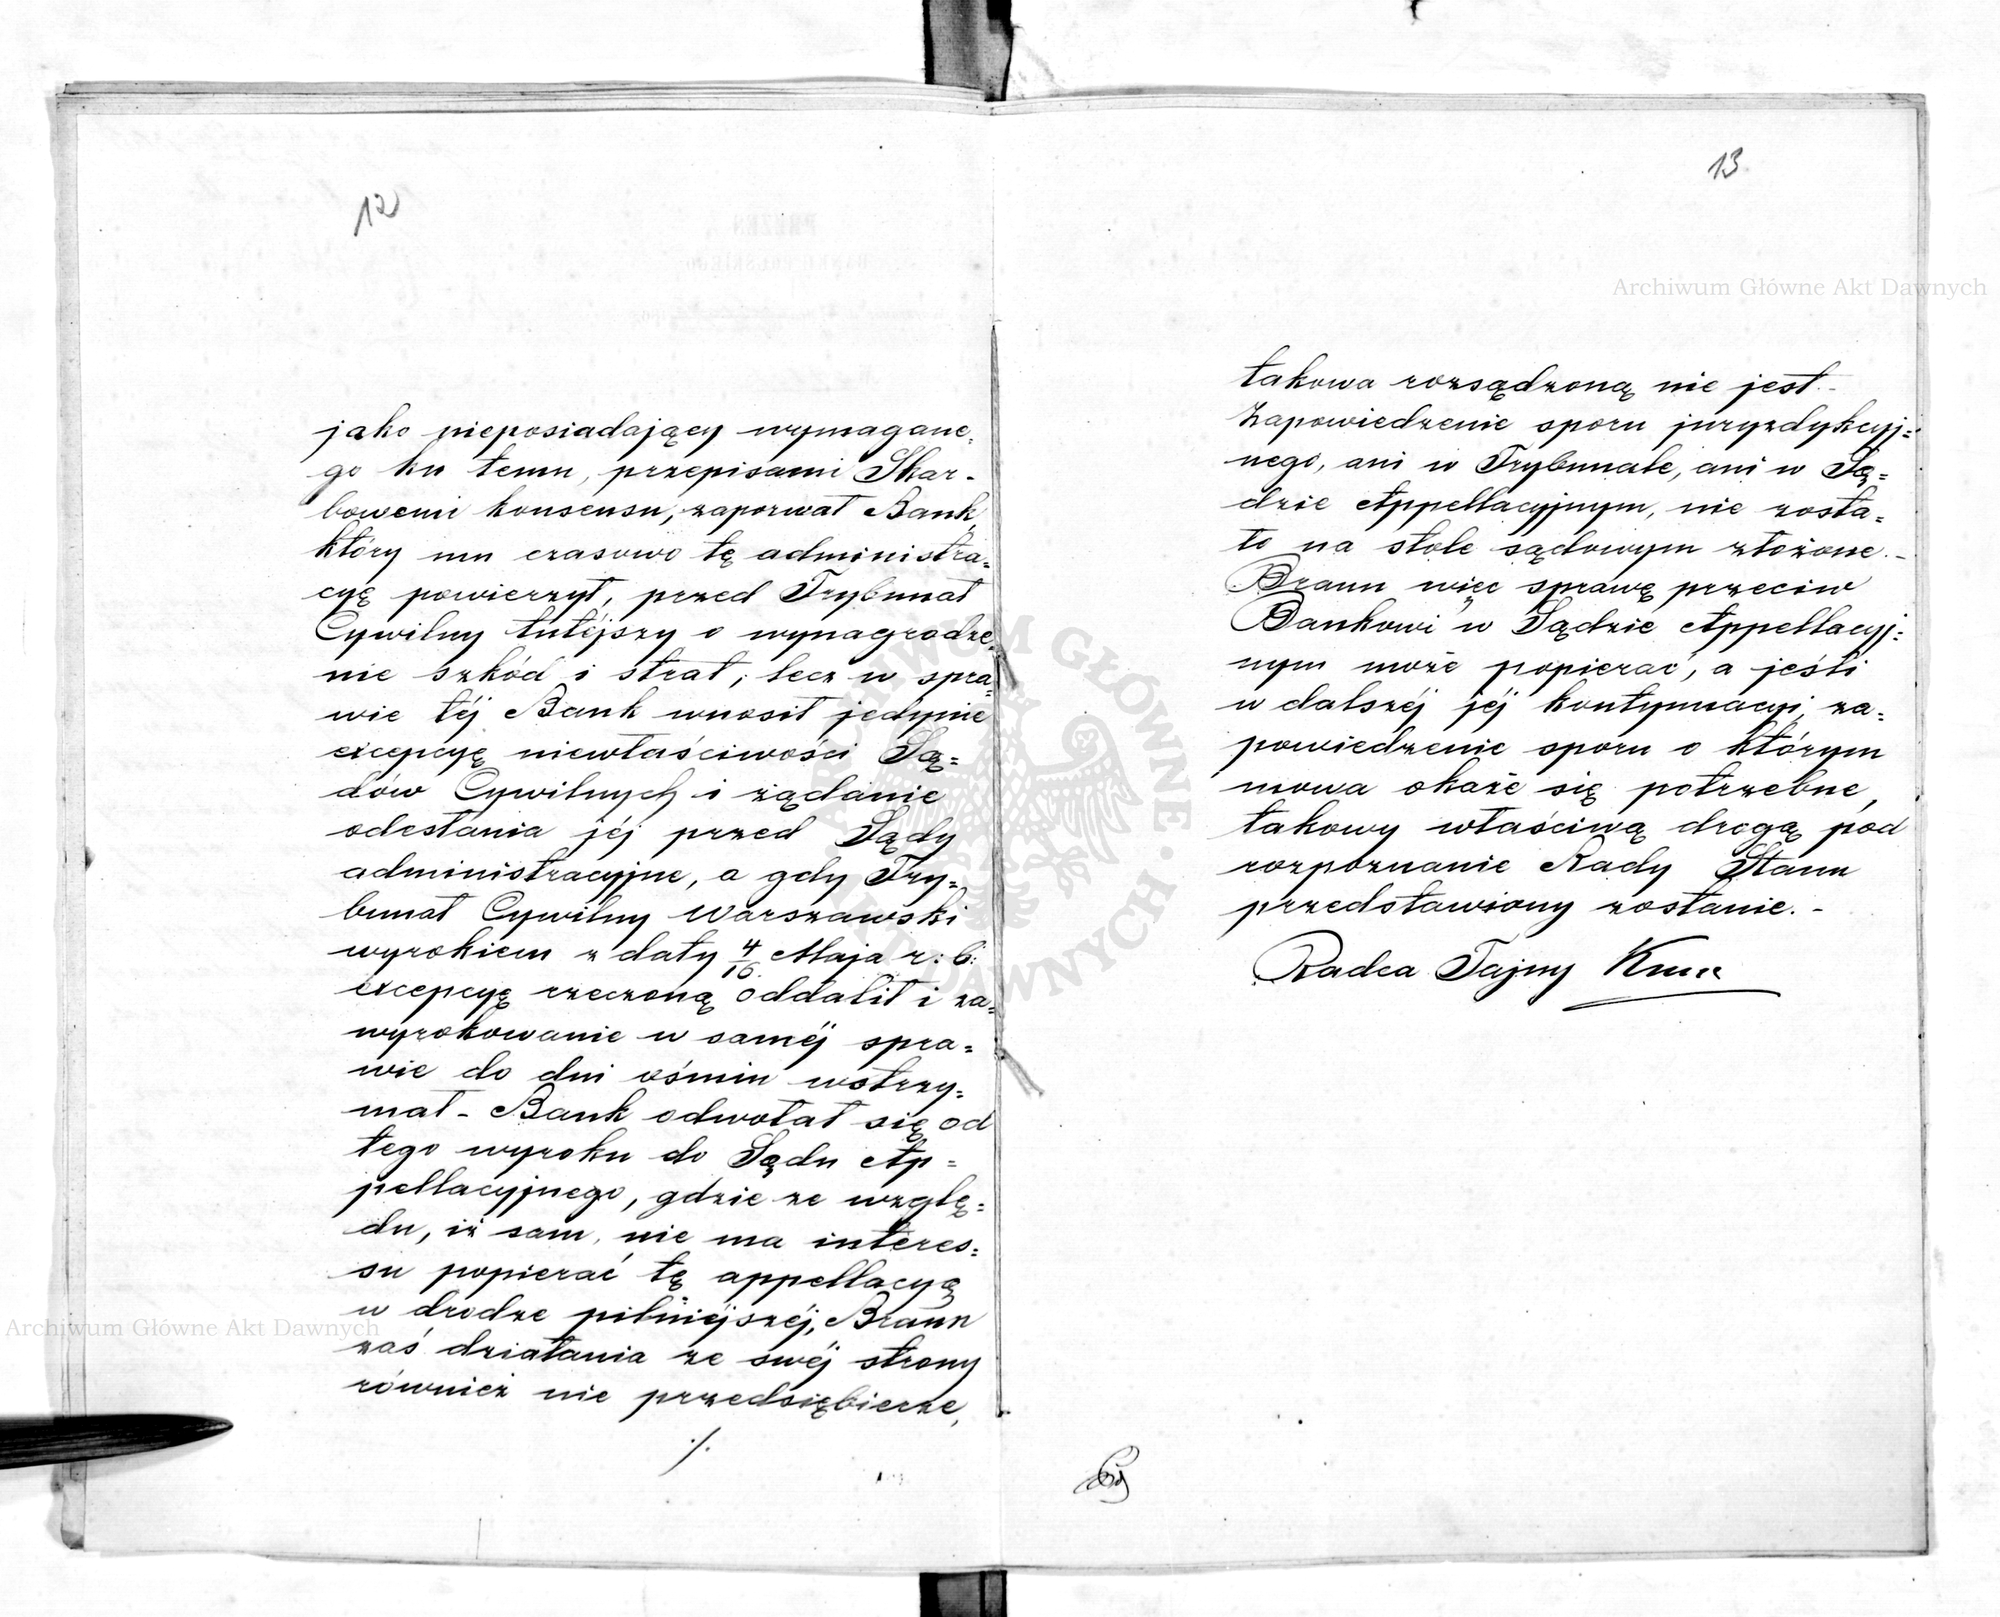 12
jako nieposiadający wymagane,
go ku temu, przepisami Skar-
bowemi konsensu, zapozwał Bank,
który mu czasowo tę administra=
cyę powierzył, przed Trybunał
Cywilny tutéjszy o wynagrodze,
nie szkód i strat, lecz w spra=
wie téj Bank wnosił jedynie
excepcyę niewłaściwości Są=
dów Cywilnych i żądanie
odesłania jéj przed Sądy
administracyjne, a gdy Try=
bunał Cywilny Warszawski
wyrokiem z daty 4/16 Maja r: b:
excepcyę rzeczoną oddalił i za=
wyrokowanie w saméj spra=
wie do dni ośmiu wstrzy=
mał - Bank odwołał się od
tego wyroku do Sądu Ap=
pellacyjnego, gdzie ze wzglę=
du, iż sam, nie ma interes=
su popierać tę appellacyą
w drodze pilniéjszéj, Braun
zaś działania ze swéj strony
również nie przedsiębierze,
./.
13
takowa rozsądzoną nie jest.-
Zapowiedzenie sporu juryzdykcyj=
nego, ani w Trybunale, ani w Są=
dzie Appellacyjnym, nie zosta=
ło na stole sądowym złożone.-
Braun więc sprawę przeciw
Bankowi w Sądzie Appellacyj=
nym może popierać, a jeśli
w dalszéj jéj kontynuacyi, za=
powiedzenie sporu o którym
mowa okaże się potrzebne,
takowy właściwą drogą pod
rozpoznanie Rady Stanu
przedstawiony zostanie.-
Radca Tajny Kruze
Archiwum Główne Akt Dawnych
Archiwum Główne Akt Dawnych
ARCHIWUM GŁÓWNE AKT DAWNYCH